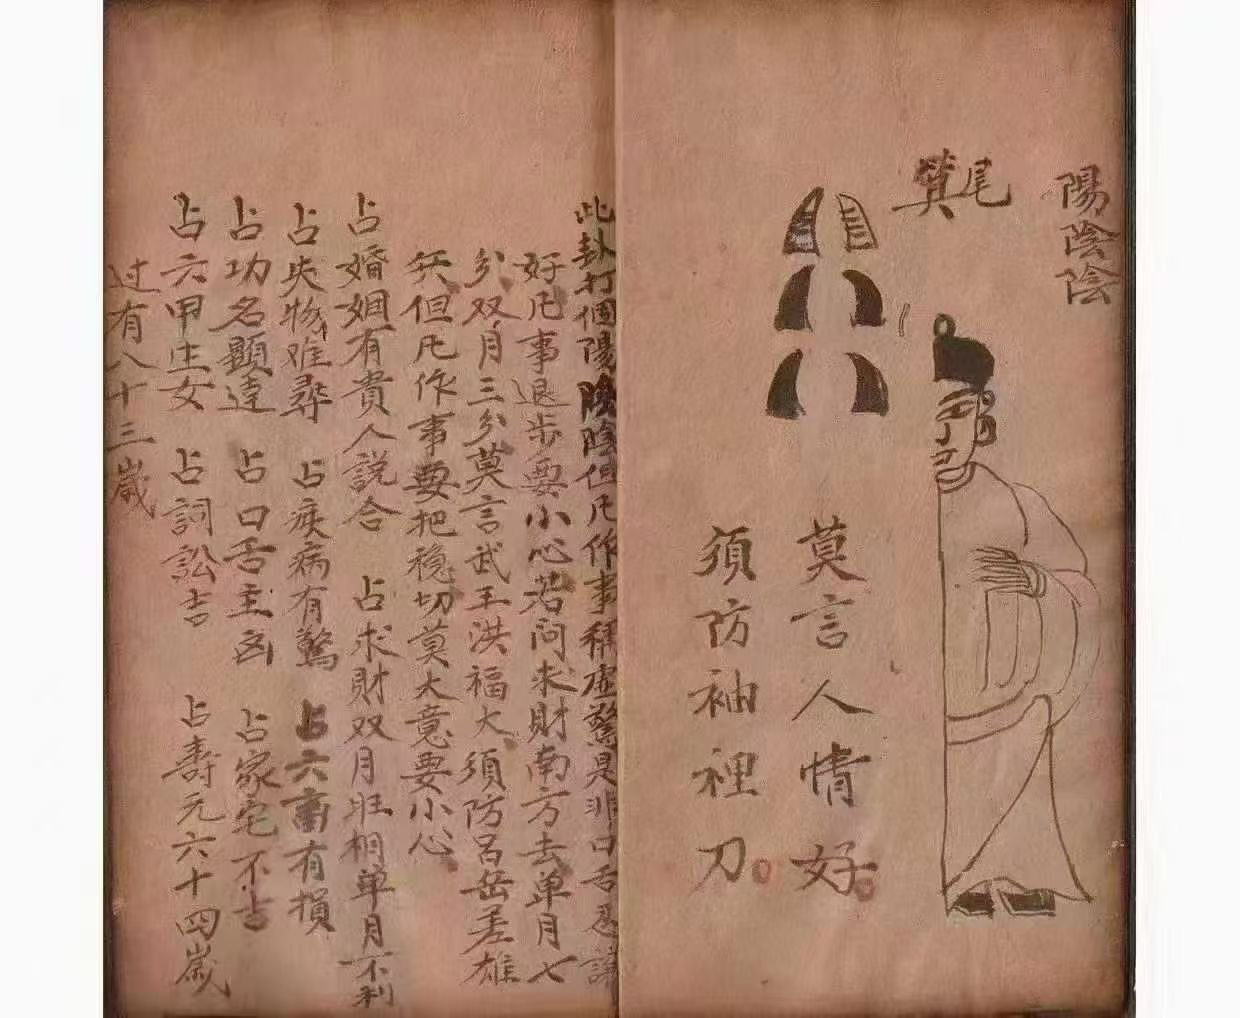 陽陰陰
尾
箕
莫言人情好
須防袖裡刀
此卦打個陽陰陰但凡作事種虛驚是非口舌忍讓
好凡事退步要小心若问求財南方去单月七
分双月三分莫言武王洪福大須防吕岳差雄
兵但凡作事要把稳切莫大意要小心
占婚姻有貴人説合 占求財双月旺相单月不利
占失物难尋 占疾病有驚 占六畜有損
占功名顯達 占口舌主凶 占家宅不吉
占六甲生女 占詞訟吉 占壽元六十四歲
过有八十三歲